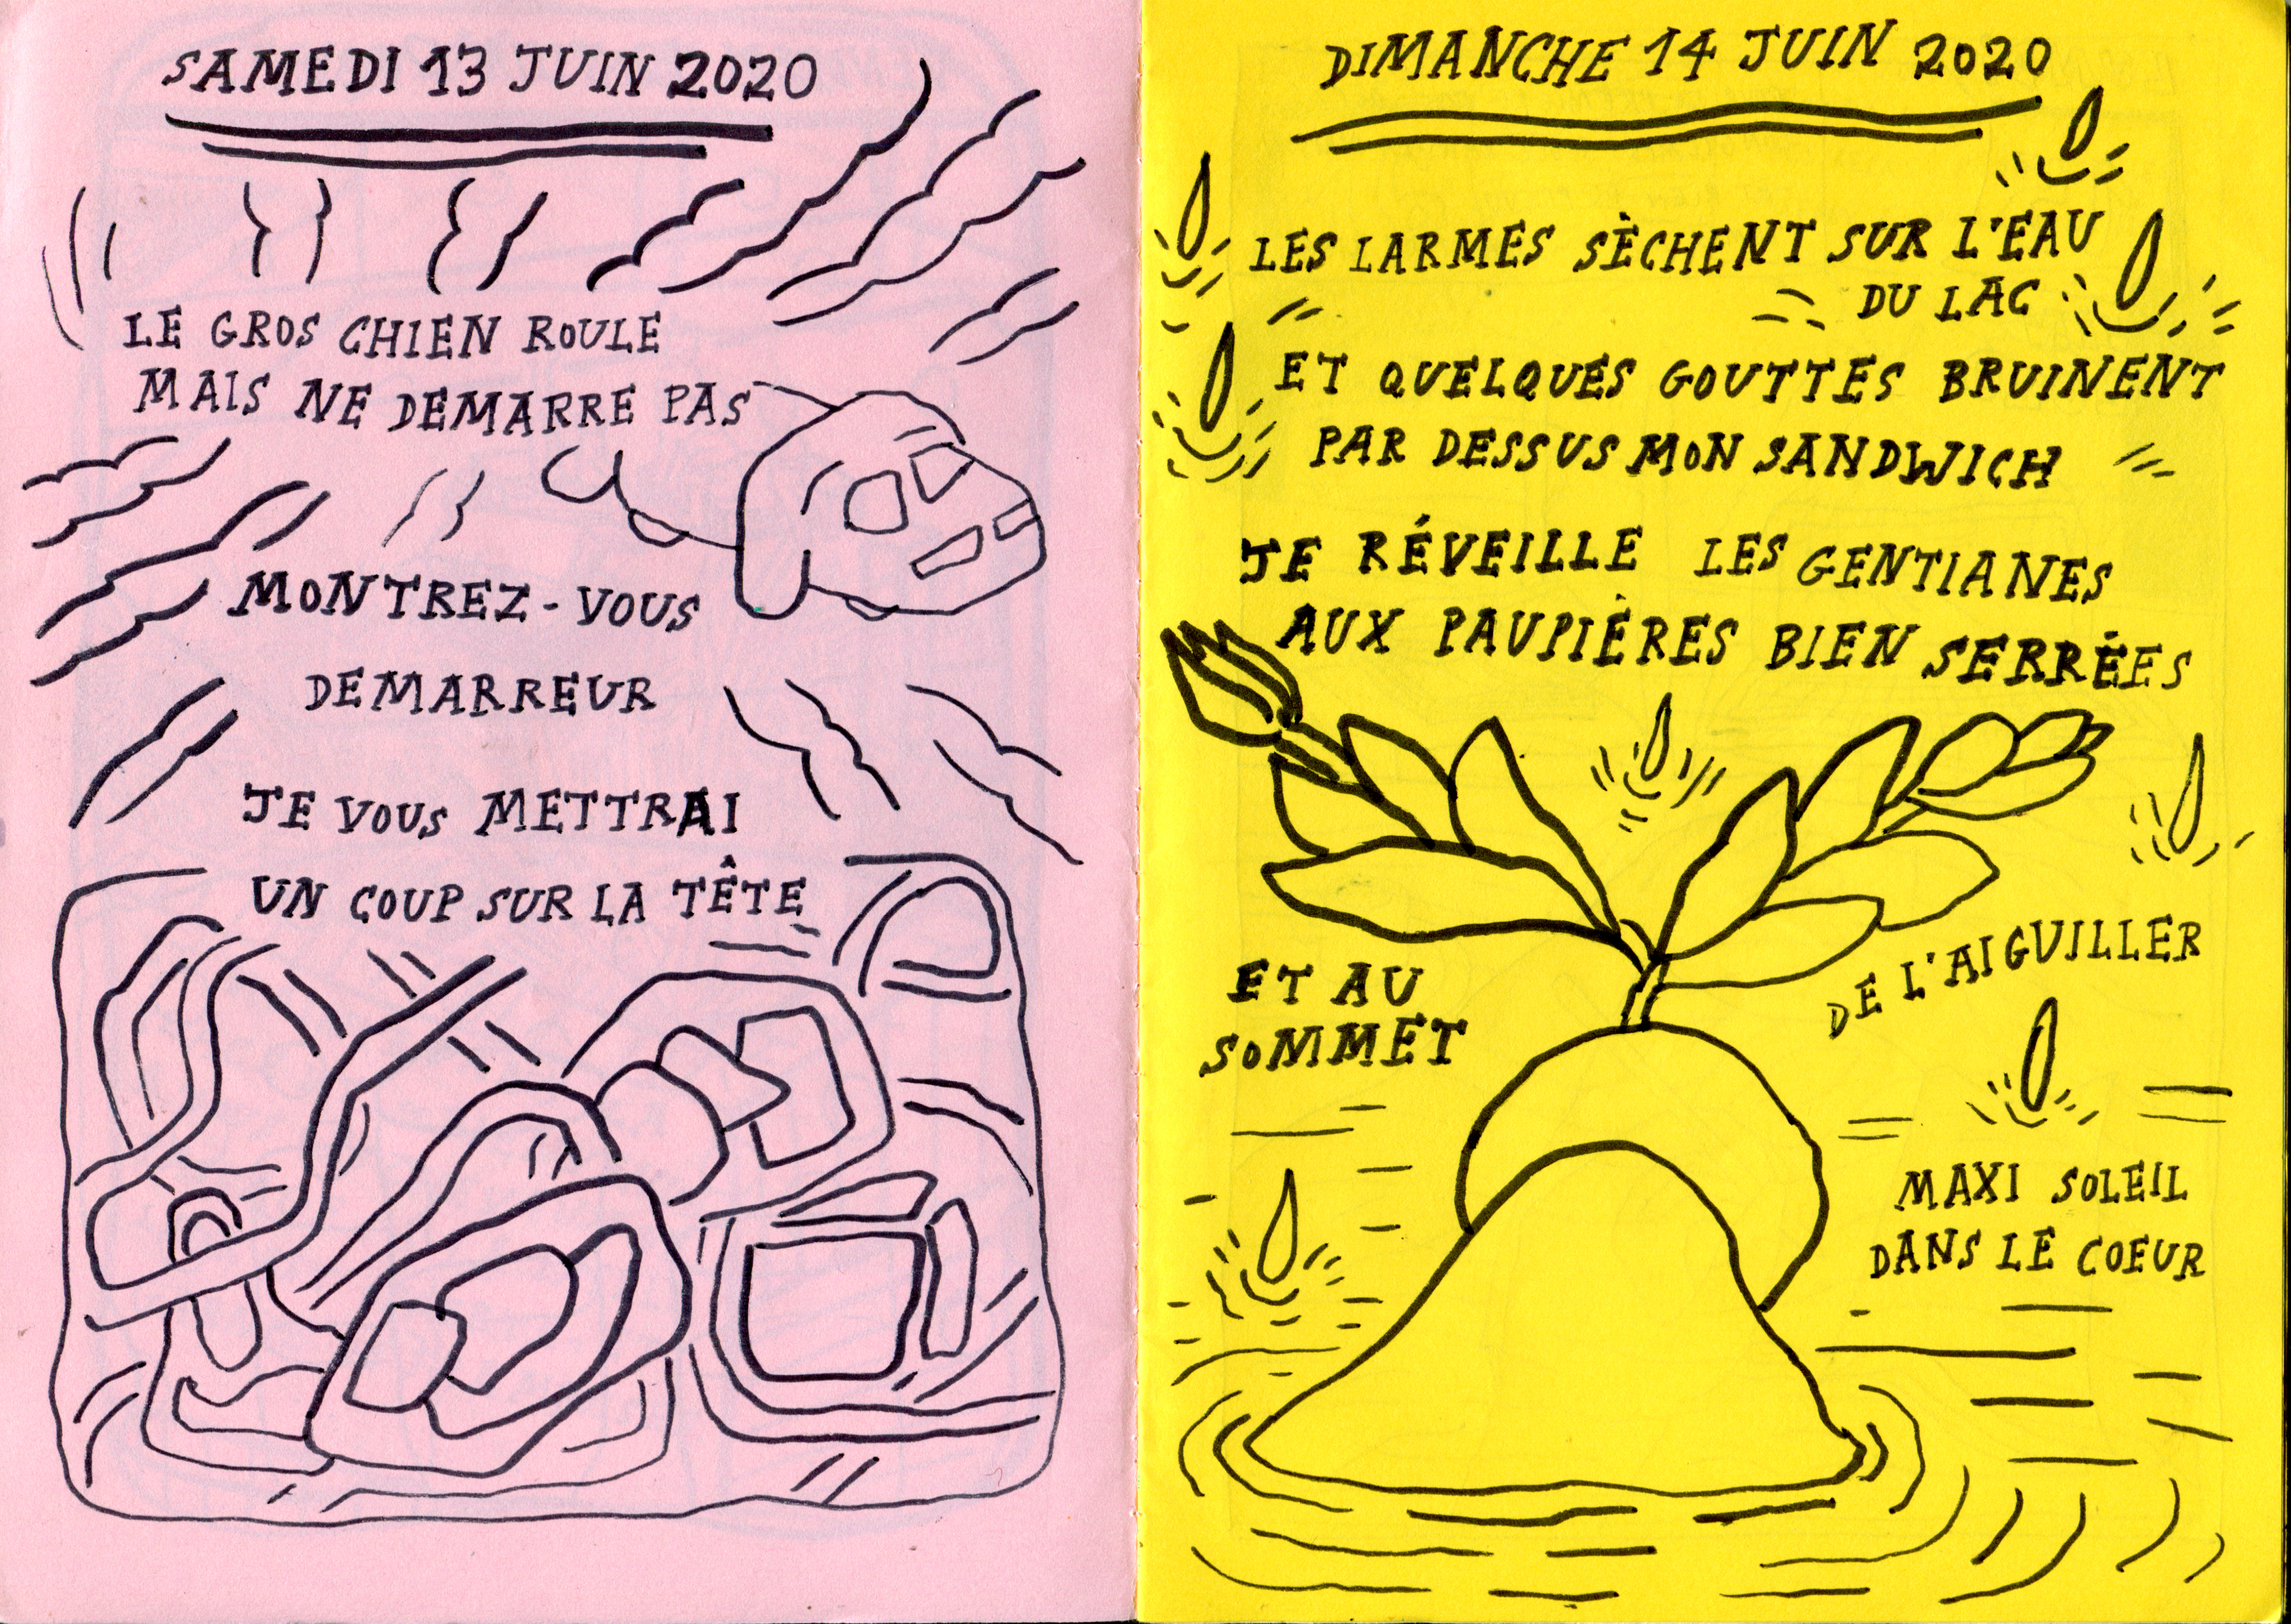 SAMEDI 13 JUIN 2020
LE GROS CHIEN ROULE
MAIS NE DEMARRE PAS
MONTREZ-VOUS
DEMARREUR
JE VOUS METTRAI
UN COUP SUR LA TÊTE
DIMANCHE 14 JUIN 2020
LES LARMES SÈCHENT SUR L'EAU
DU LAC
ET QUELQUES GOUTTES BRUINENT
PAR DESSUS MON SANDWICH
JE RÉVEILLE LES GENTIANES
AUX PAUPIÈRES BIEN SERRÉES
ET AU
SOMMET
DE L'AIGUILLER
MAXI SOLEIL
DANS LE COEUR